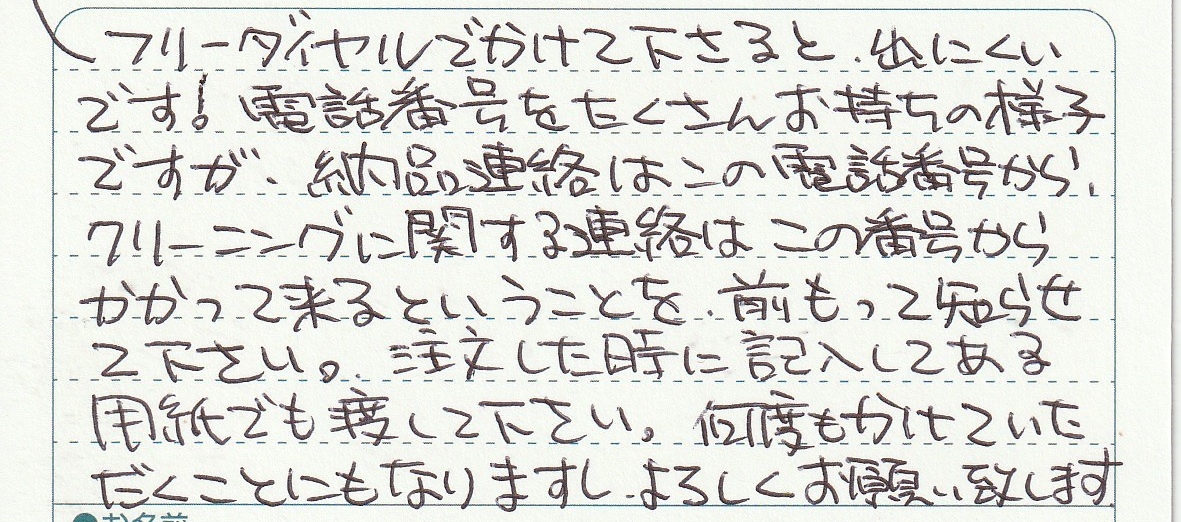 フリーダイヤルでかけて下さると、出にくい
です！電話番号をたくさんお持ちの様子
ですが、納品連絡はこの電話番号から、
クリーニングに関する連絡はこの番号から
かかって来るということを、前もって知らせ
て下さい。注文した時に記入してある
用紙でも渡して下さい。何度もかけていた
だくことにもなりますし、よろしくお願い致します
●お名前